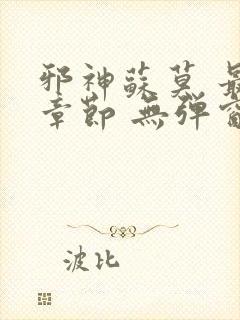 邪神蘇莫 最
章節 無彈窗
波比